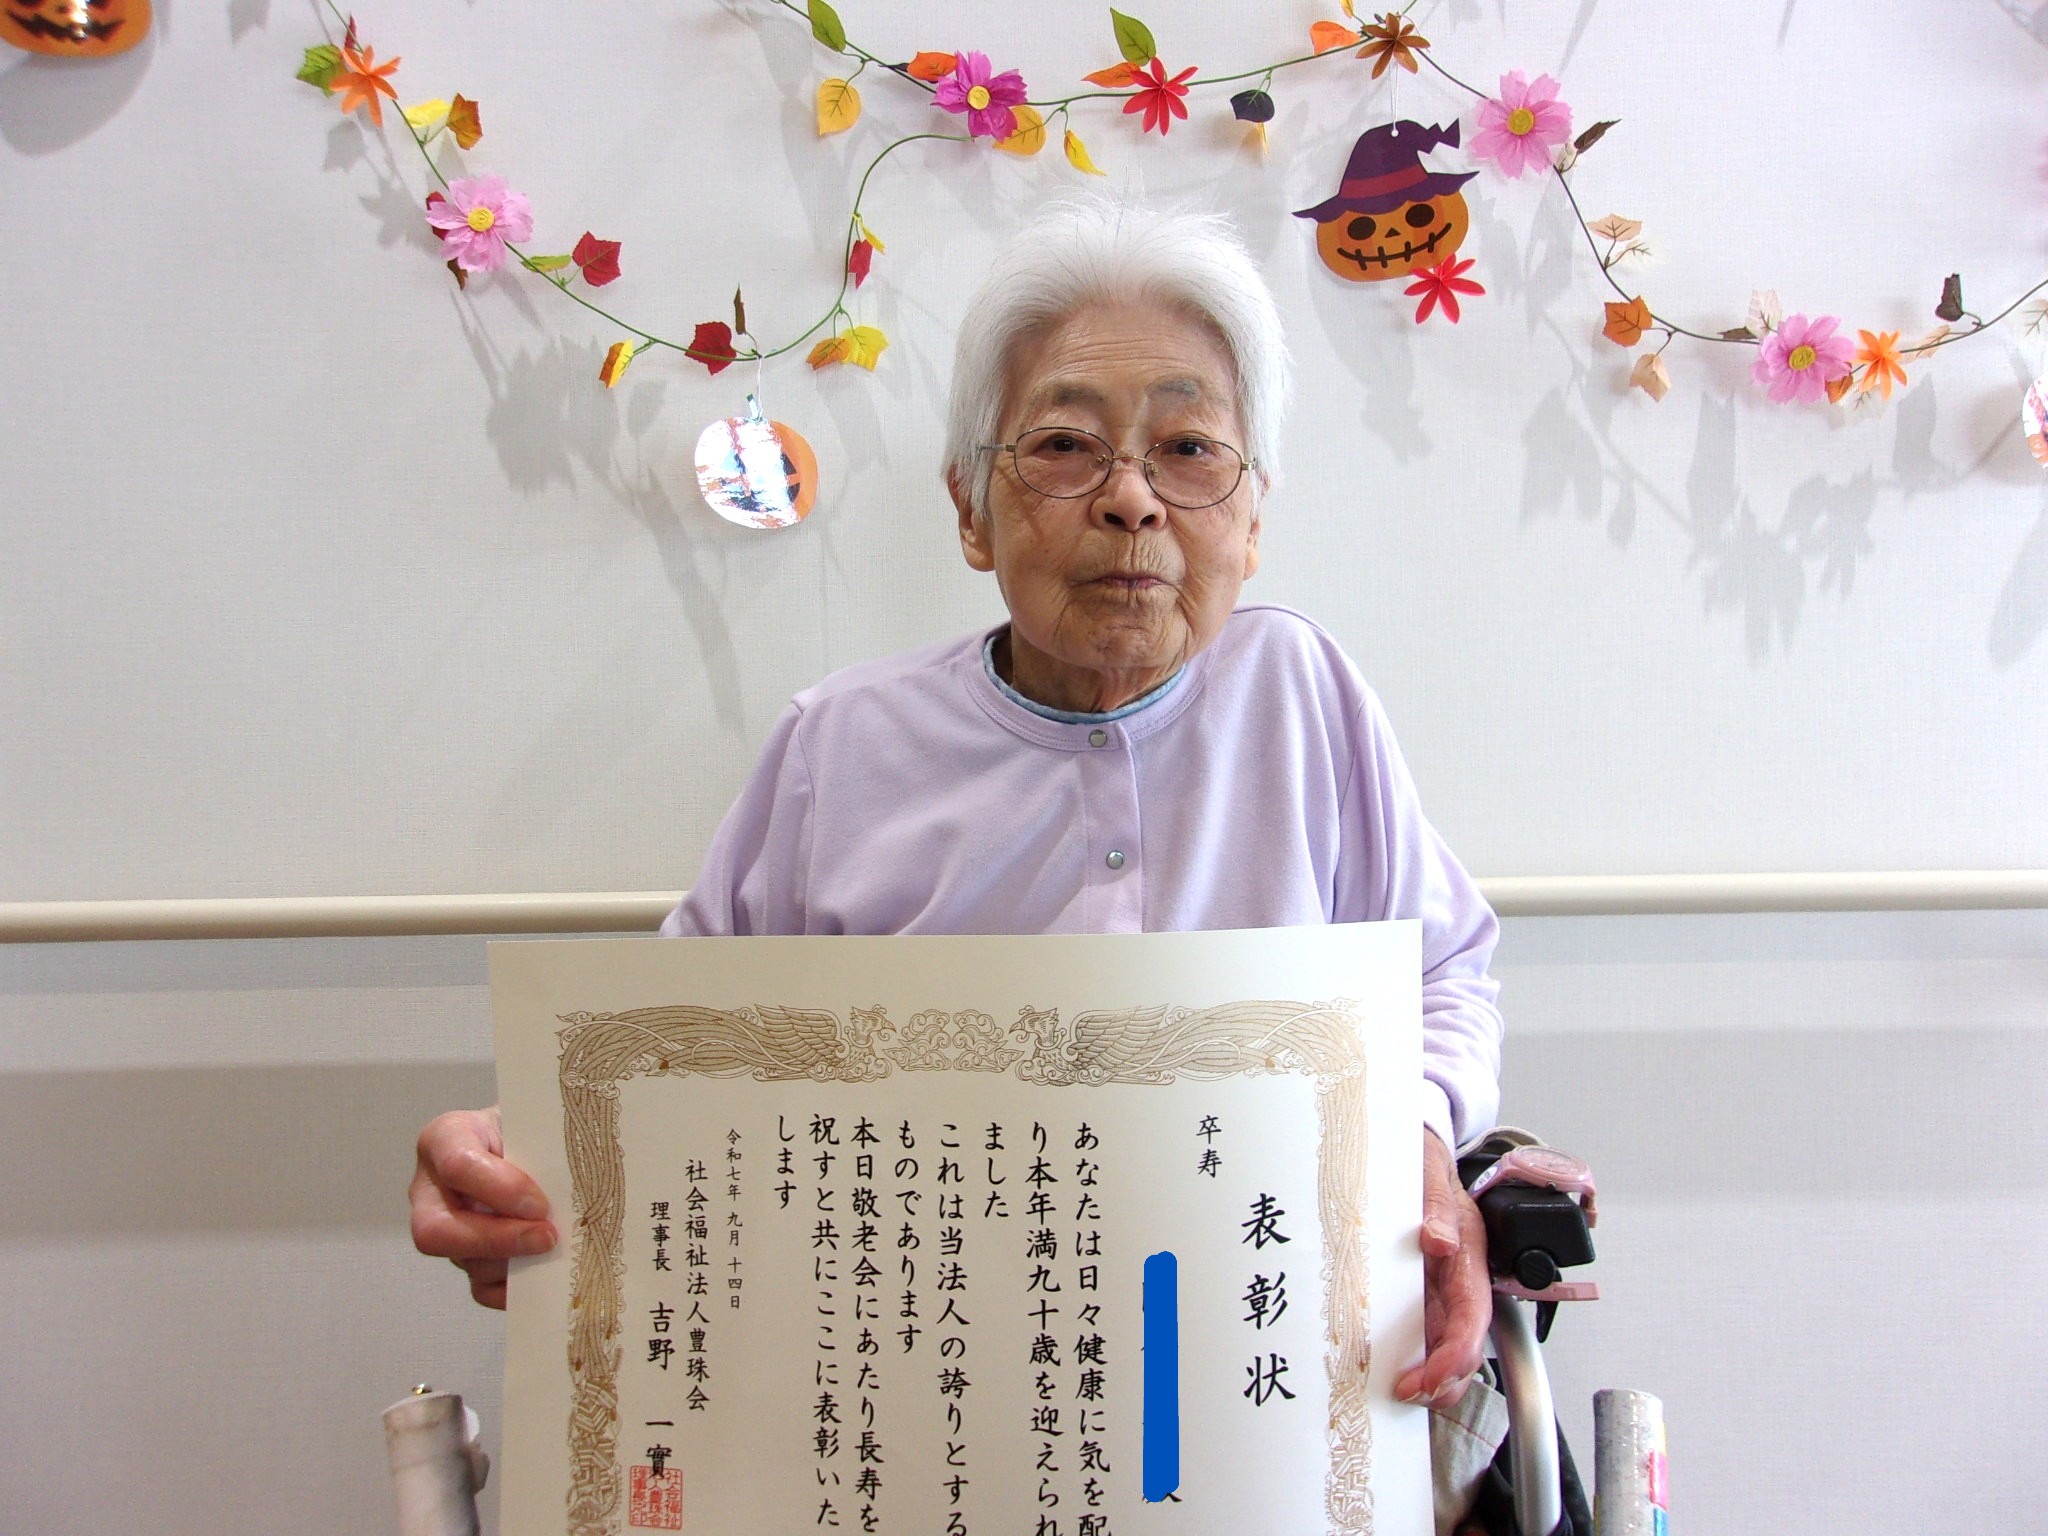 表彰状
卒寿
あなたは日々健康に気を配
り本年満九十歳を迎えられ
ました
これは当法人の誇りとする
ものであります
本日敬老会にあたり長寿を
祝すと共にここに表彰いた
します
令和七年 九月 十四日
社会福祉法人豊珠会
理事長 吉野 一實